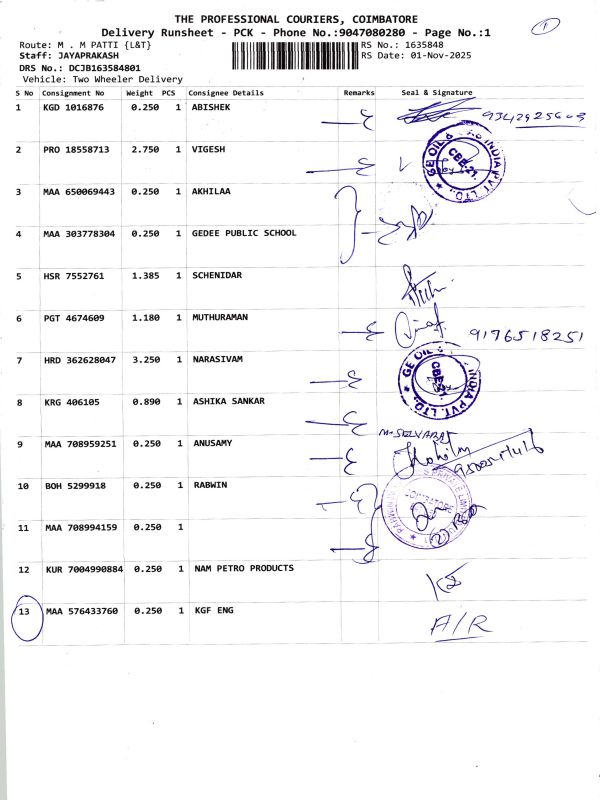 THE PROFESSIONAL COURIERS, COIMBATORE
1
Delivery Runsheet - PCK - Phone No.:9047080280 - Page No.:1
Route: M . M PATTI {L&T} RS No.: 1635848
Staff: JAYAPRAKASH RS Date: 01-Nov-2025
DRS No.: DCJB163584801
Vehicle: Two Wheeler Delivery
S No Consignment No Weight PCS Consignee Details Remarks Seal & Signature
1 KGD 1016876 0.250 1 ABISHEK
2 PRO 18558713 2.750 1 VIGESH
GE OIL & GAS INDIA PVT. LTD. CBE-21.
3 MAA 650069443 0.250 1 AKHILAA
4 MAA 303778304 0.250 1 GEDEE PUBLIC SCHOOL
5 HSR 7552761 1.385 1 SCHENIDAR
6 PGT 4674609 1.180 1 MUTHURAMAN 9176518251
7 HRD 362628047 3.250 1 NARASIVAM
GE OIL & INDIA PVT. LTD. CBE-21.
8 KRG 406105 0.890 1 ASHIKA SANKAR
9 MAA 708959251 0.250 1 ANUSAMY
10 BOH 5299918 0.250 1 RABWIN
11 MAA 708994159 0.250 1
12 KUR 7004990884 0.250 1 NAM PETRO PRODUCTS
13 MAA 576433760 0.250 1 KGF ENG A/R